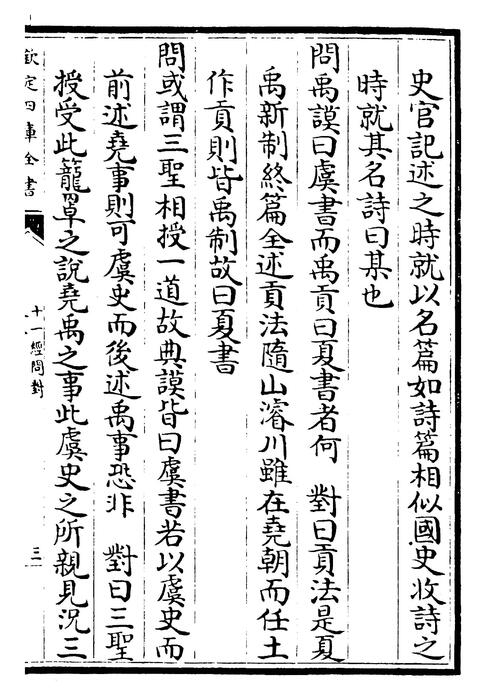 史官記述之時就以名篇如詩篇相似國史收詩之
時就其名詩曰某也
問禹謨曰虞書而禹貢曰夏書者何　對曰貢法是夏
禹新制終篇全述貢法隨山濬川雖在堯朝而任土
作貢則皆禹制故曰夏書
問或謂三聖相授一道故典謨皆曰虞書若以虞史而
前述堯事則可虞史而後述禹事恐非　對曰三聖
授受此籠罩之說堯禹之事此虞史之所親見況三
欽定四庫全書
十一經問對
三